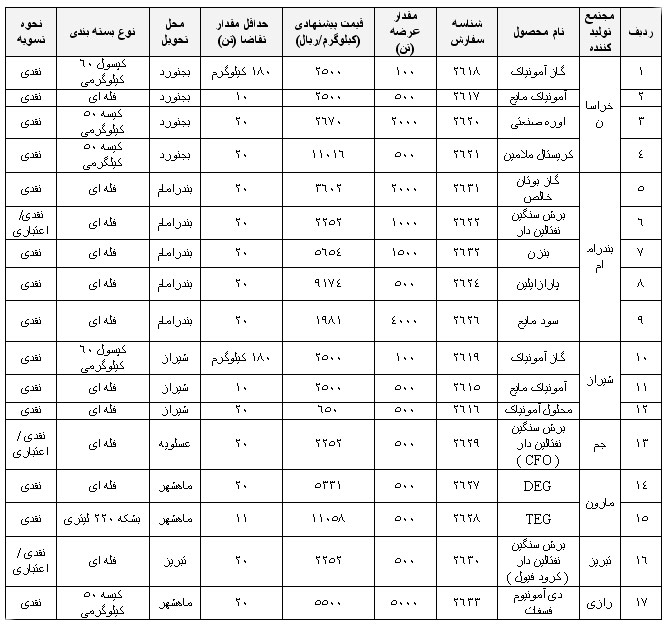 ردیف | مجتمع تولید کننده | نام محصول | شناسه سفارش | مقدار عرضه (تن) | قیمت پیشنهادی (کیلوگرم/ریال) | حداقل مقدار تقاضا (تن) | محل تحویل | نوع بسته بندی | نحوه تسویه
۱ | خراسان | گاز آمونیاک | ۲۶۱۸ | ۱۰۰ | ۲۵۰۰ | ۱۸۰ کیلوگرم | بجنورد | کپسول ۶۰ کیلوگرمی | نقدی
۲ | آمونیاک مایع | ۲۶۱۷ | ۵۰۰ | ۲۵۰۰ | ۱۰ | بجنورد | فله ای | نقدی
۳ | اوره صنعتی | ۲۶۲۰ | ۲۰۰۰ | ۲۶۷۰ | ۲۰ | بجنورد | کیسه ۵۰ کیلوگرمی | نقدی
۴ | کریستال ملامین | ۲۶۲۱ | ۵۰۰ | ۱۱۰۱۶ | ۲۰ | بجنورد | کیسه ۵۰ کیلگرمی | نقدی
۵ | بندرامام | گاز بوتان خالص | ۲۶۳۱ | ۲۰۰۰ | ۳۶۰۲ | ۲۰ | بندرامام | فله ای | نقدی
۶ | برش سنگین نفتالین دار | ۲۶۲۲ | ۱۰۰۰ | ۲۲۵۲ | ۲۰ | بندرامام | فله ای | نقدی/ اعتباری
۷ | بنزن | ۲۶۳۲ | ۱۵۰۰ | ۵۶۵۴ | ۲۰ | بندرامام | فله ای | نقدی
۸ | پارازایلین | ۲۶۲۴ | ۵۰۰ | ۹۱۷۴ | ۲۰ | بندرامام | فله ای | نقدی
۹ | سود مایع | ۲۶۲۶ | ۴۰۰۰ | ۱۹۸۱ | ۲۰ | بندرامام | فله ای | نقدی
۱۰ | شیراز | گاز آمونیاک | ۲۶۱۹ | ۱۰۰ | ۲۵۰۰ | ۱۸۰ کیلوگرم | شیراز | کپسول ۶۰ کیلوگرمی | نقدی
۱۱ | آمونیاک مایع | ۲۶۱۵ | ۵۰۰ | ۲۵۰۰ | ۱۰ | شیراز | فله ای | نقدی
۱۲ | محلول آمونیاک | ۲۶۱۶ | ۵۰۰ | ۶۵۰ | ۲۰ | شیراز | فله ای | نقدی
۱۳ | جم | برش سنگین نفتالین دار (CFO) | ۲۶۲۹ | ۵۰۰ | ۲۲۵۲ | ۲۰ | عسلویه | فله ای | نقدی / اعتباری
۱۴ | مارون | DEG | ۲۶۲۷ | ۵۰۰ | ۵۳۳۱ | ۲۰ | ماهشهر | فله ای | نقدی
۱۵ | TEG | ۲۶۲۸ | ۵۰۰ | ۱۱۰۵۸ | ۱۱ | ماهشهر | بشکه ۲۲۰ لیتری | نقدی
۱۶ | تبریز | برش سنگین نفتالین دار (کرود فیول) | ۲۶۳۰ | ۵۰۰ | ۲۲۵۲ | ۲۰ | تبریز | فله ای | نقدی / اعتباری
۱۷ | رازی | دی آمونیوم فسفات | ۲۶۳۳ | ۵۰۰۰ | ۵۵۰۰ | ۲۰ | ماهشهر | کیسه ۵۰ کیلوگرمی | نقدی